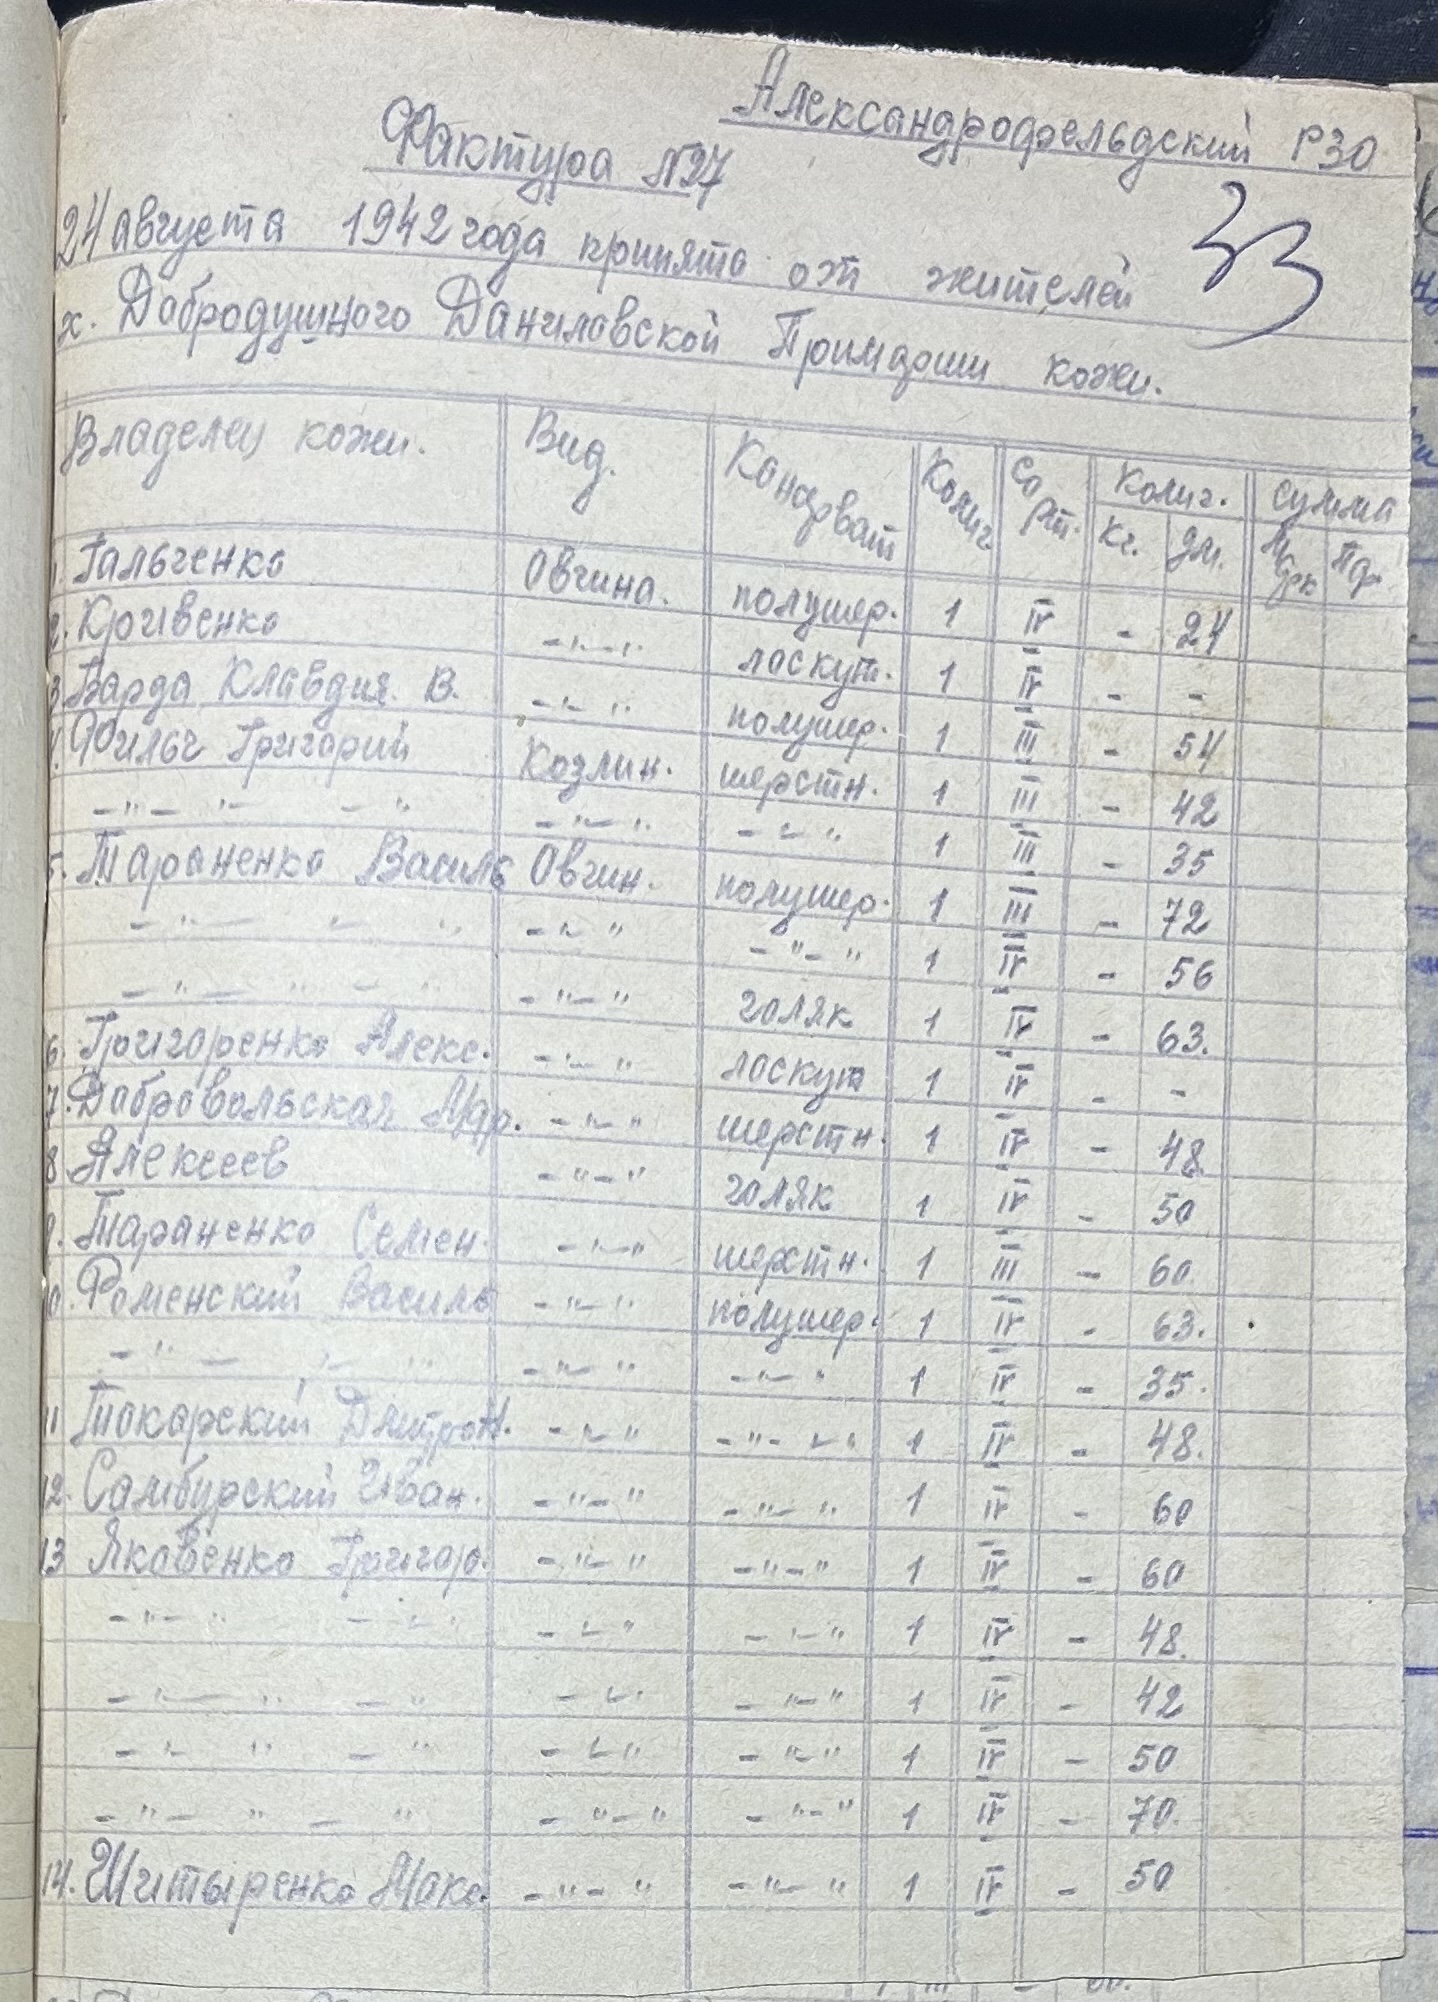 Александрофельдский РЗО
Фактура №27
33
24 августа 1942 года принято от жителей
х. Добродушного Даниловской Примарии кожи.
Владелец кожи. Вид. Кансрват Колич. Сорт. Колич. сумма
кг. дм. Марк Пф.
1. Гальченко Овчина. полушер. 1 IV - 24
2. Кривенко -"-" лоскут. 1 IV - -
3. Варда Клавдия. В. -"-" полушер. 1 III - 54
4. Фильч Григорий Козлин. шерстн. 1 III - 42
-"- "- -" -"-" -"-" 1 III - 35
5. Тараненко Василь Овчин. полушер. 1 III - 72
-"- " " -"-" -"-" 1 IV - 56
-"- " - " -"-" голяк 1 IV - 63.
6. Григоренко Алекс. -"-" лоскут 1 IV - -
7. Добровольская Мар. -"-" шерстн. 1 IV - 48.
8 Алексеев -"-" голяк 1 IV - 50
9. Тараненко Семен. -"-" шерстн. 1 III - 60.
10. Роменский Василь -"-" полушер. 1 IV - 63.
-"- "- " -"-" -"-" 1 IV - 35.
11 Токарский Дмитро Н. -"-" -"-"-" 1 IV - 48.
12. Самбурский Иван. -"-" -"-" 1 IV - 60
13 Яковенко Григор. -"-" -"-" 1 IV - 60
-"-" -"-" -"-" -"-" 1 IV - 48.
-"- " -" -"-" -"-" 1 IV - 42
-"- " -" -"-" -"-" 1 IV - 50
-"- " - " -"-" -"-" 1 IV - 70.
14. Шитыренко Макс. -"-" -"-" 1 IV - 50